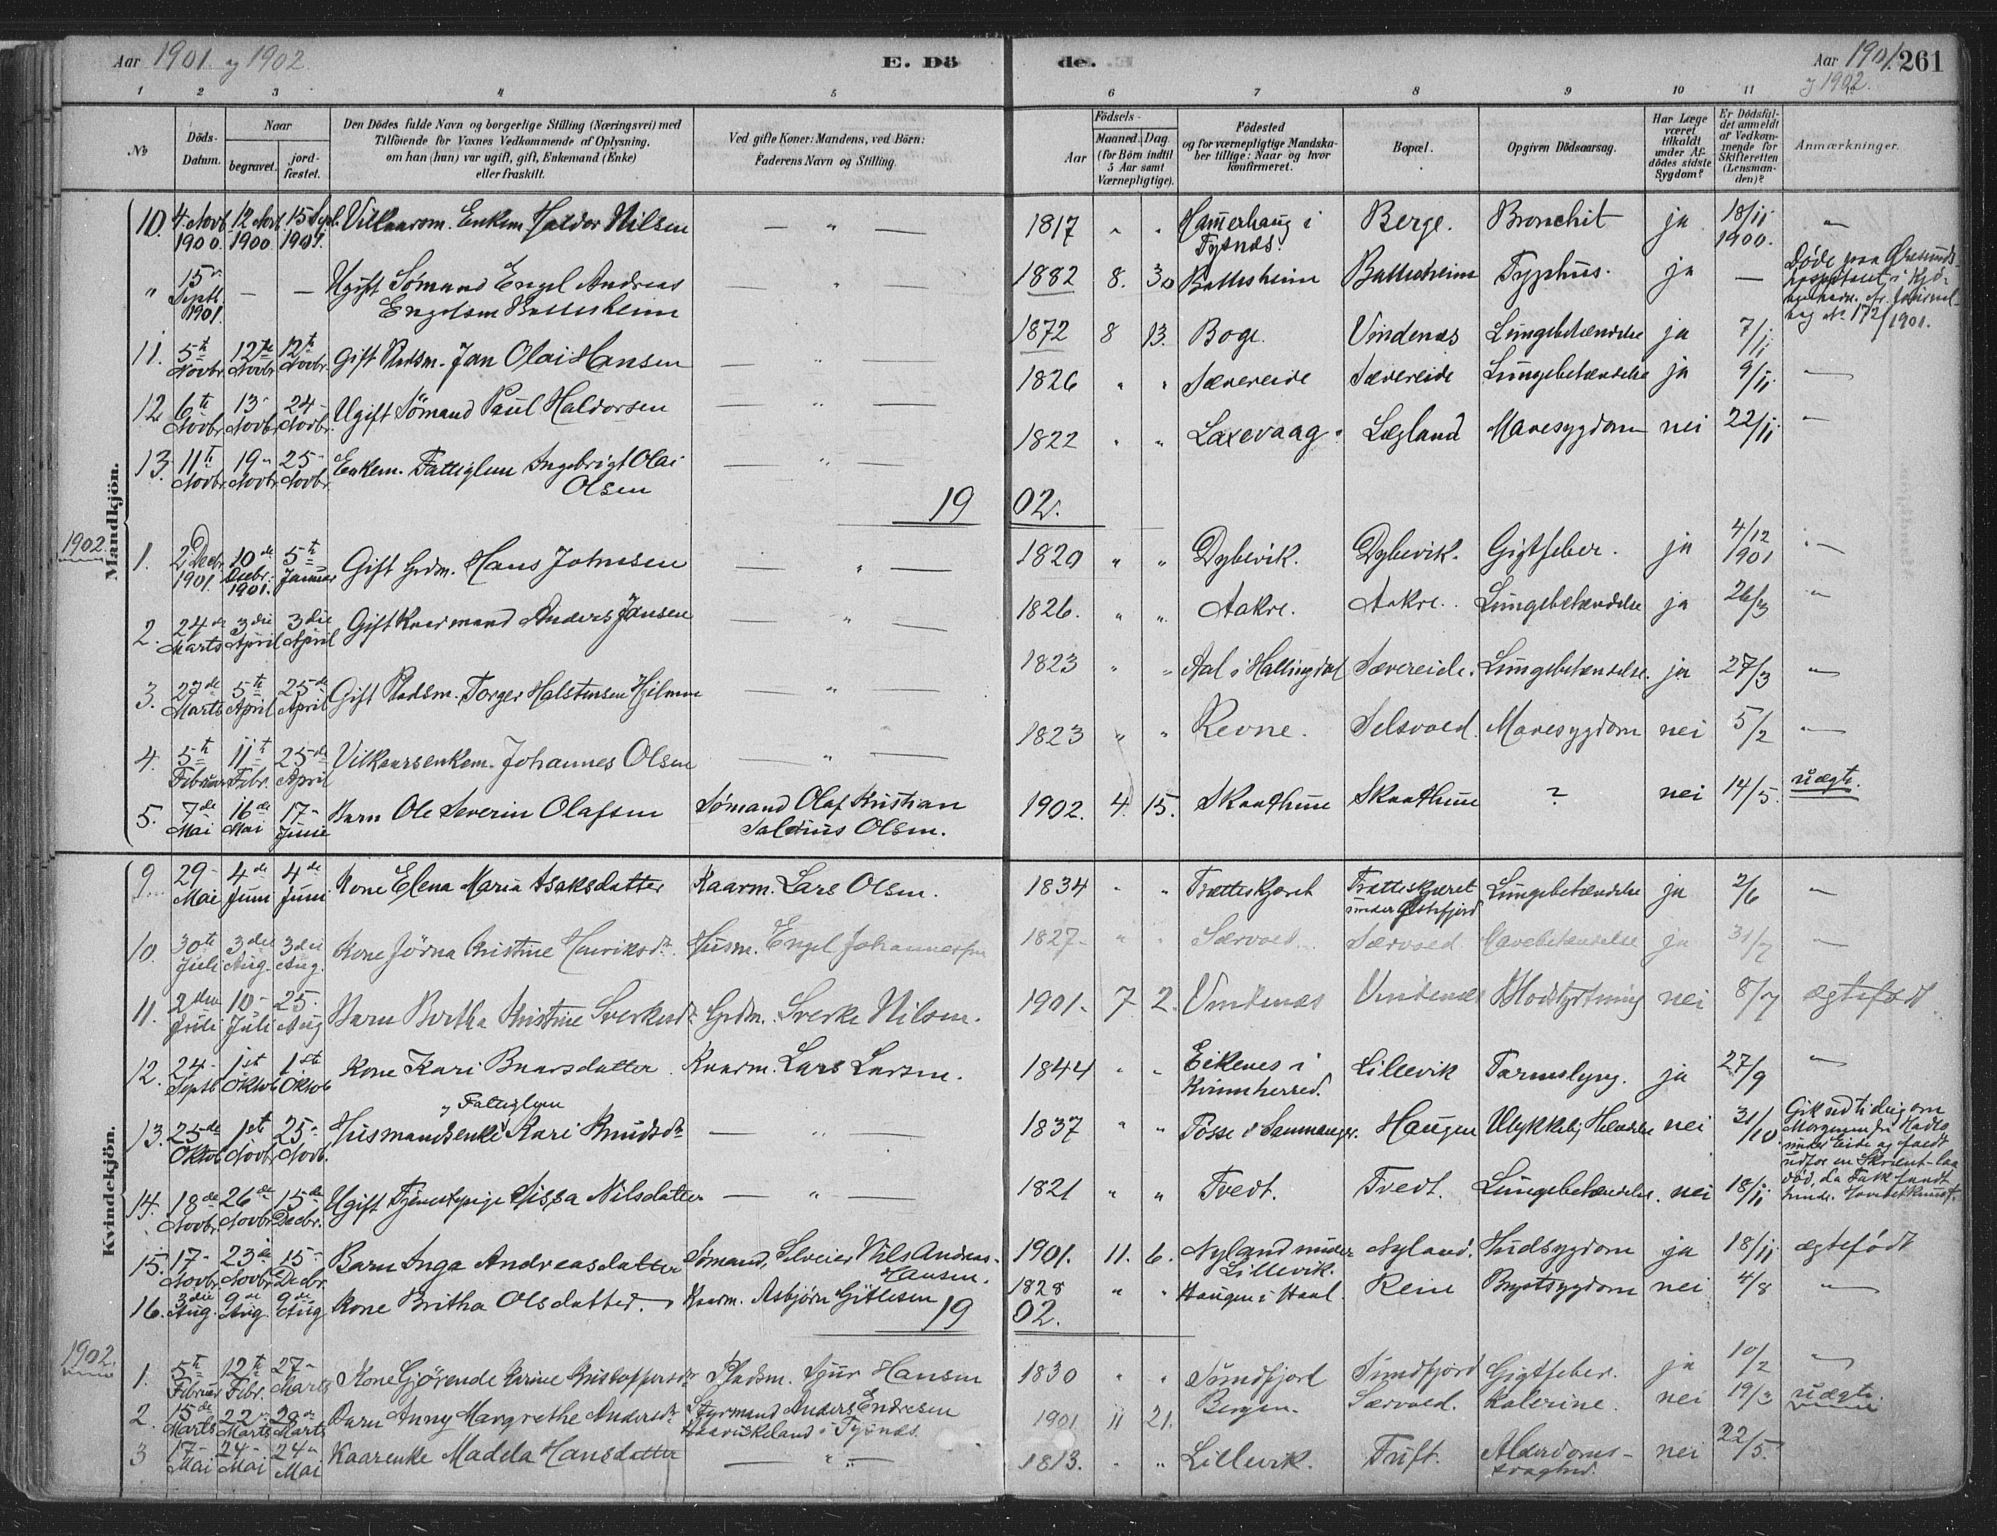 Aar 1901 og 1902. E. Dö de. Aar 1901 og 1902. 261
1 2 3 4 5 6 7 8 9 10 11
No
Döds-Datum.
Naar
begravet. jordfæstet.
Den Dödes fulde Navn og borgerlige Stilling (Næringsvei) med
Tilföiende for Voxnes Vedkommende af Oplysning,
om han (hun) var ugift, gift, Enkemand (Enke)
eller fraskilt.
Ved gifte Koner: Mandens, ved Börn:
Faderens Navn og Stilling.
Födsels-
Aar Maaned. Dag.
(for Börn indtil 5 Aar samt Værnepligtige).
Födested
og for værnepligtige Mandskaber tillige: Naar og hvor konfirmeret.
Bopæl.
Opgiven Dödsaarsag.
Har Læge været tilkaldt under Afdödes sidste Sygdom?
Er Dödsfaldet anmeldt af Vedkommende for Skifteretten (Lensmanden)?
Anmærkninger.
Mandkjön.
10. 4. Novb. 1900. 12 Novb 1900. 15 Sept. 1901. Vilkaarsm. Enkem. Haldor Nilsen — " — 1817 " " Hammerhaug i Tysnæs. Berge. Bronchit ja 18/11 1900. "
" 15de Septb. 1901. — — Ugift Sømand Engel Andreas Engelsen Battesheim 1882 8. 30 Battesheim Battesheim Typhus. ja — Døde paa Øresunds
11. 5te Novbr 12te Novbr 12te Novbr. Gift Pladsm. Jan Olai Hansen — " — 1872 8 13. Boge. Vindenæs Lungebetændelse ja 7/11
12. 6te Novbr 13 Novbr 24 Novbr. Ugift Sømand Paul Haldorsen — " — 1826 " " Sævereide Sævereide Lungebetændelse ja 9/11 "
13. 11te Novbr 19 Novbr 25 Novbr. Enkem. Fattiglem Ingebrigt Olai Olsen — " — 1822 " " Laxevaag. Lægland Mavesygdom nei 22/11 "
1902.
1902
1. 2. Decbr 1901. 10de Decbr. 1901. 5te Januar Gift Grdm. Hans Johnsen — " — 1820 " " Dybevik. Dybevik. Gigtfeber. ja 4/12 1901 "
2. 24de Marts 3die April 3die April Gift Kaarmand Anders Jansen — " — 1826. " " Aakre. Aakre. Lungebetændelse ja 26/3 "
3. 27de Marts 5te April 25de April Gift Pladsm. Torger Halstensen Hjelmen — " — 1823 " " Aal i Hallingdal Sævereide. Lungebetændelse. ja 27/3 "
4. 5te Februar 11te Febr. 25de April Vilkaarsenkem. Johannes Olsen — " — 1823 " " Revne. Selsvold. Mavesygdom nei 5/2 "
5. 7de Mai 16de Mai 17 Juni Barn Ole Severin Olafsen Sømand Olaf Kristian Salvius Olsen. 1902. 4. 15. Skaathun Skaathun ? nei 14/5. uægte.
Kvindekjön.
9. 29 Mai 4de Juni 4de Juni Kone Elena Maria Isaksdatter Kaarm. Lars Olsen. 1834 " " Trætteskjæret Trætteskjæret under Lungebetændelse ja 2/6 "
10. 30te Juli 3die Aug. 3die Aug. Kone Jørna Kristine Henriksdr. Husm. Engel Johannessen 1827 " " Særvold. Særvold Mavebetændelse ja 31/7 "
11. 2den Juli 10 Juli 25. Aug Barn Bertha Kristine Sverkesdr Grdm. Sverke Nilsen. 1901. 7 2. Vindenæs Vindenæs Blodstyrtning nei 8/7 ægtefødt
12. 24 Septb 1st Oktob 1ste Oktob Kone Kari Baarsdatter Kaarm. Lars Larsen. 1844 " " Eikenes i Kvinnherred. Lillevik Tarmslyng. ja 27/9 "
13. 25de Oktob 1st Novbr 25 Novb. Husmandsenke og Fattiglem Kari Knudsdr — " — 1837 " " Tosse i Samnanger. Haugen Ulykkelig Hændelse nei 31/10. Gik ud tidlig om Morgenen fra
14. 18de Novbr 26de Novbr 15de Decbr. Ugift Tjenestepige Sissa Nilsdatter — " — 1821 " " Tvedt. Tvedt. Lungebetændelse. nei 18/11
15. 17 Novbr 23die Novbr 15 Decbr. Barn Inga Andreasdatter Sømand, Selveier Nils Andreas Hansen. 1901. 11. 6. Nyland under Lillevik. Nyland. Hudsygdom ja 18/11 ægtefødt
16. 3die Aug. 9de Aug. 9de Aug Kone Britha Olsdatter. Kaarm. Asbjørn Gitlesen 1828 " " Haugen i Haal. Rein Brystsygdom nei 4/8 "
1902.
1902.
1. 5te Februar 12te Febr. 27 Marts Kone Gjørende Karine Kristoffersdr Pladsm. Sjur Hansen 1830 " " Sundfjord Sundfjord Gigtfeber. ja 10/2 "
2. 15de Marts 22 Marts 28de Marts Barn Anny Margrethe Andersdr Styrmand Anders Endresen Haaviskeland i Tysnæs. 1901 11 21. Bergen. Særvold. Kolerine. nei 19/3 uægte.
3 17 Mai 24 Mai 24 Mai Kaarenke Madela Hansdatter — " — 1813. " " Lillevik. Tuft. Alderdomssvaghed. nei 22/5.